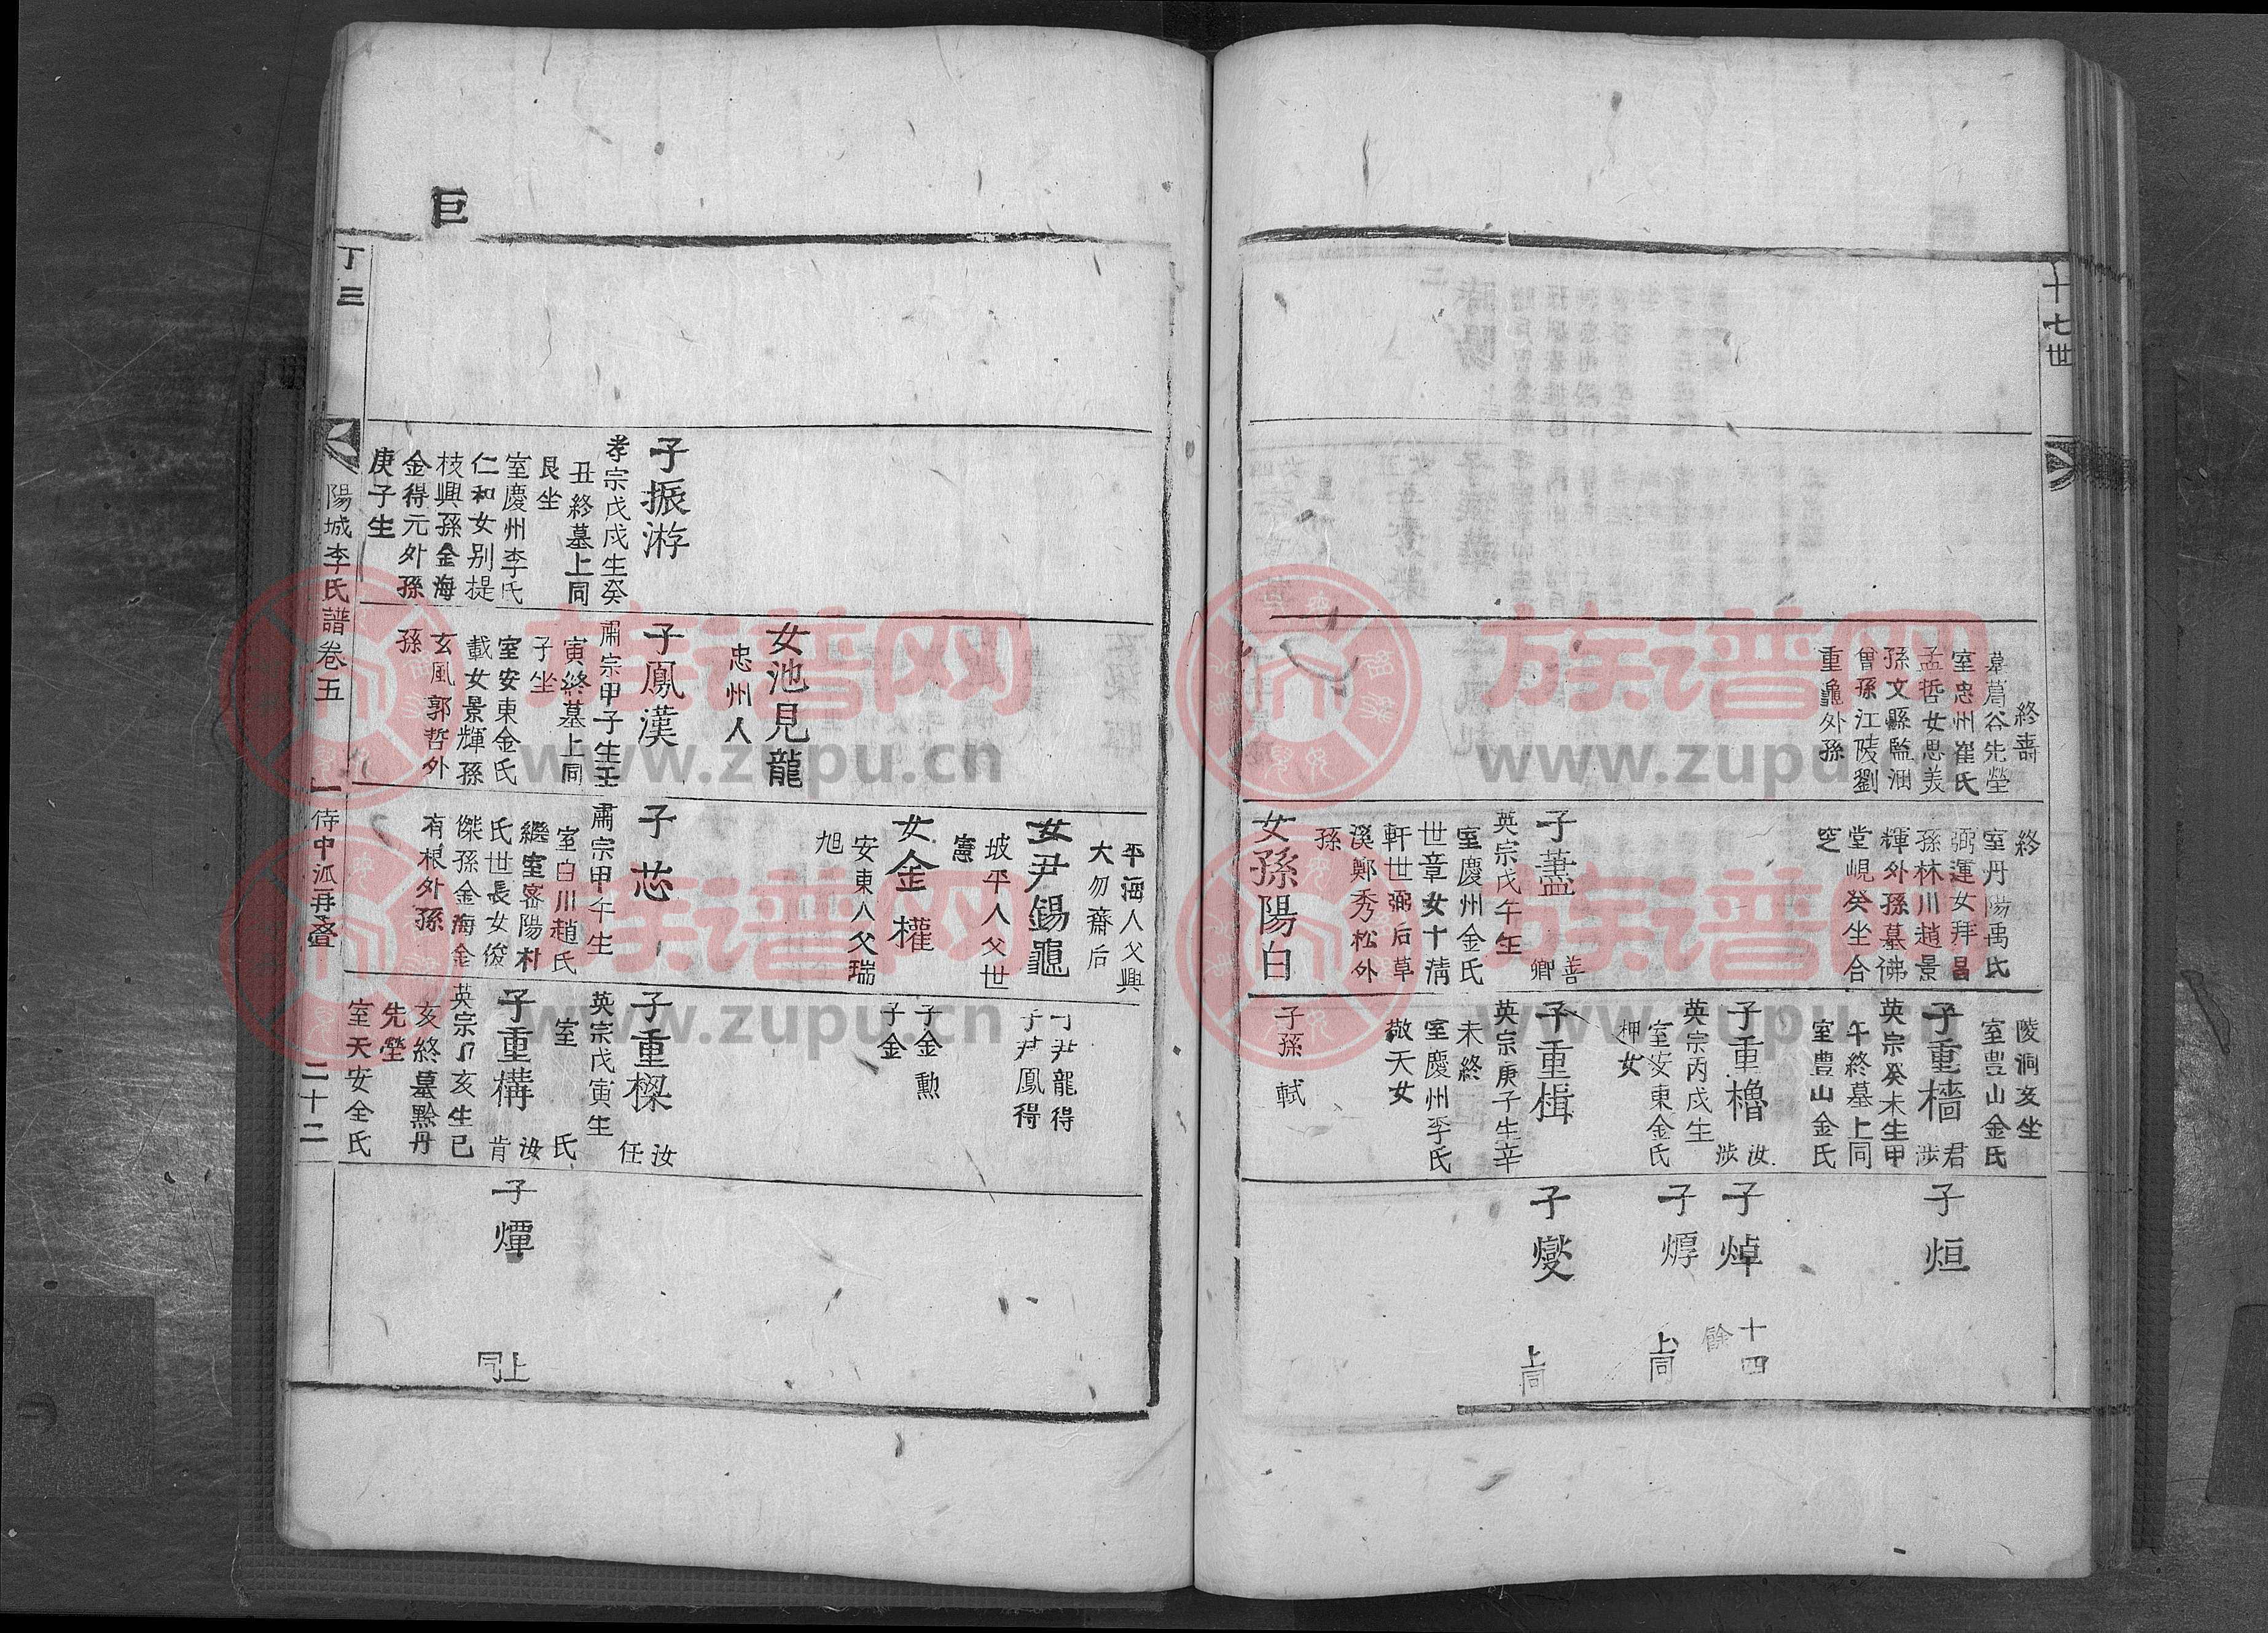 十七世
終壽
墓葛谷先塋
室忠州崔氏
孟哲女思義
孫文縣監涸
曾孫江陵劉
重龜外孫
終
室丹陽禹氏
弼運女拜昌
孫林川趙景
輝外孫墓佛
堂峴癸坐合
窆
子藎
善卿
英宗戊午生
室慶州金氏
世章女十淸
軒世弼后草
溪鄭秀松外
孫
女孫陽白
陵洞亥坐
室豊山金氏
子重檣
君涉
英宗癸未生甲
午終墓上同
室豊山金氏
子重櫓
汝涉
英宗丙戌生
室安東金氏
柙女
子重楫
英宗庚子生辛
未終
室慶州李氏
敬天女
子孫軾
子烜
子焯
十四
餘
子焞
上同
子燮
上同
巨
子振游
孝宗戊戌生癸
丑終墓上同
艮坐
室慶州李氏
仁和女別提
枝興孫金海
金得元外孫
庚子生
女池見龍
忠州人
子鳳漢
肅宗甲子生壬
寅終墓上同
子坐
室安東金氏
載女景輝孫
玄風郭哲外
孫
平海人父興
大勿齋后
女尹錫龜
坡平人父世
憲
女金權
安東人父瑞
旭
子芯
肅宗甲午生
室白川趙氏
繼室密陽朴
氏世長女俊
傑孫金海金
有根外孫
子尹龍得
子尹鳳得
子金勲
子金
子重樑
汝任
英宗戊寅生
室 氏
子重構
汝肯
英宗丁亥生已
亥終墓黙丹
先塋
室天安全氏
子燂
上同
丁三
陽城李氏譜卷五
侍中派再疊
二十二
族谱网
www.zupu.cn
族谱网
www.zupu.cn
族谱网
www.zupu.cn
族谱网
www.zupu.cn